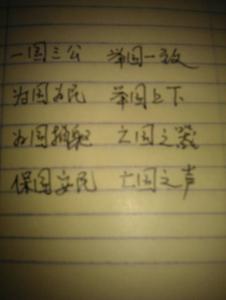 一国三公 举国一致
为国为民 举国上下
为国捐躯 亡国之器
保国安民 亡国之声